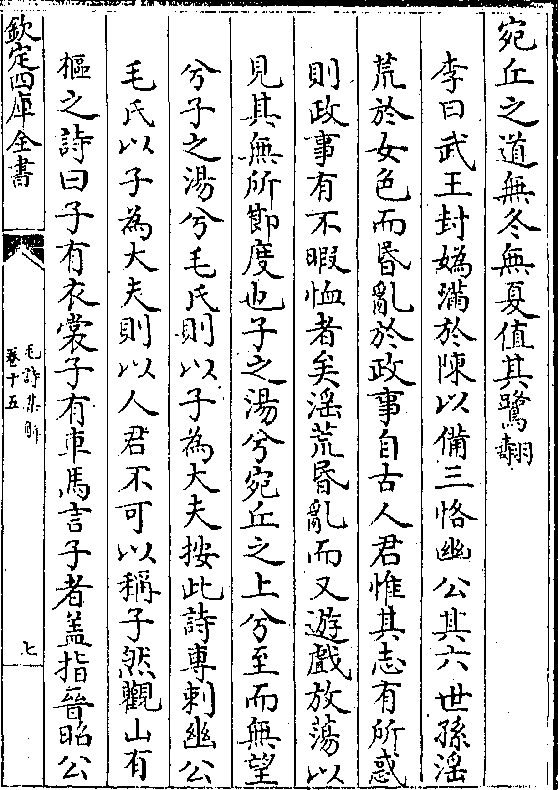 宛丘之道無冬無夏值其鷺翿
李曰武王封媯滿於陳以備三恪幽公其六世孫淫
荒於女色而昏亂於政事自古人君惟其志有所惑
則政事有不暇恤者矣淫荒昏亂而又遊戲放蕩以
見其無所節度也子之湯兮宛丘之上兮至而無望
兮子之湯兮毛氏則以子為大夫按此詩專刺幽公
毛氏以子為大夫則以人君不可以稱子然觀山有
樞之詩曰子有衣裳子有車馬言子者蓋指晉昭公
欽定四庫全書
毛詩集解
卷十五
七